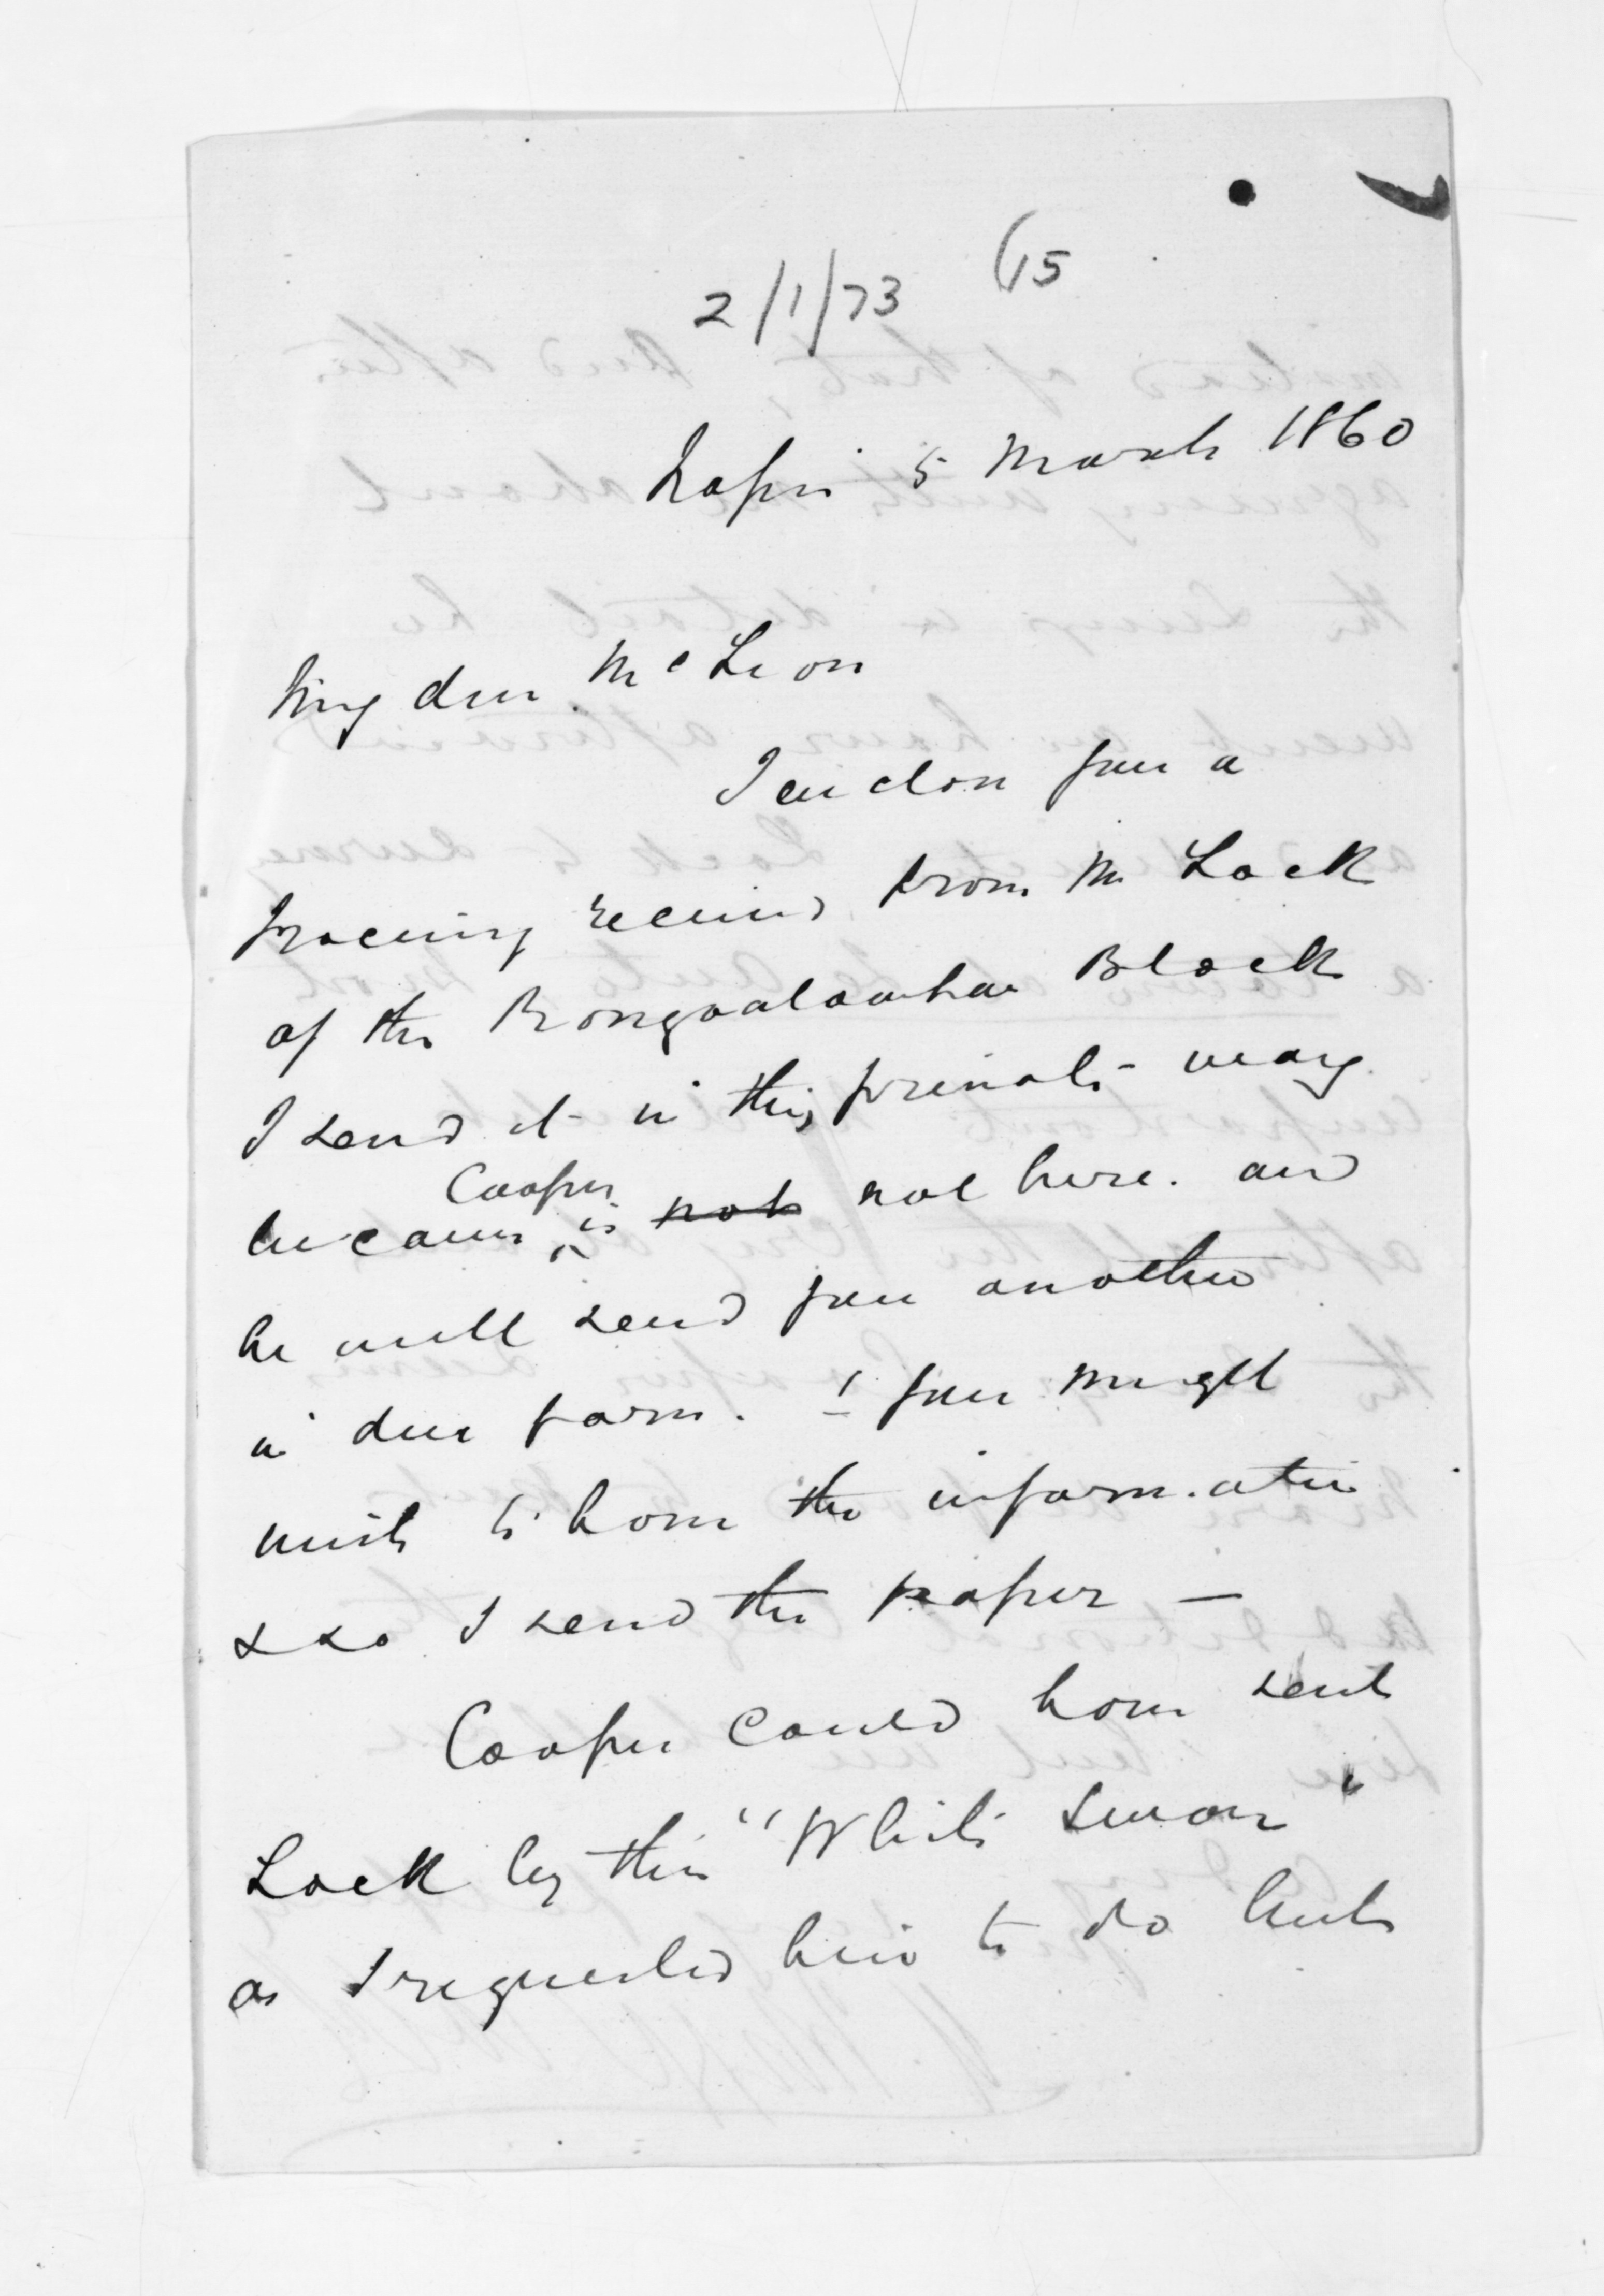 2/1/73 (15
Napier 5 March 1860
My dear McLean
I enclose you a
tracing received from Mr Lock
of the Block
I send it in this private way
because Cooper is not not here. and
he will send you another
in due form. & you might
wish to have the information
& so I send the paper —
Cooper could have sent
Lock by the "White Swan"
as I requested him to do but